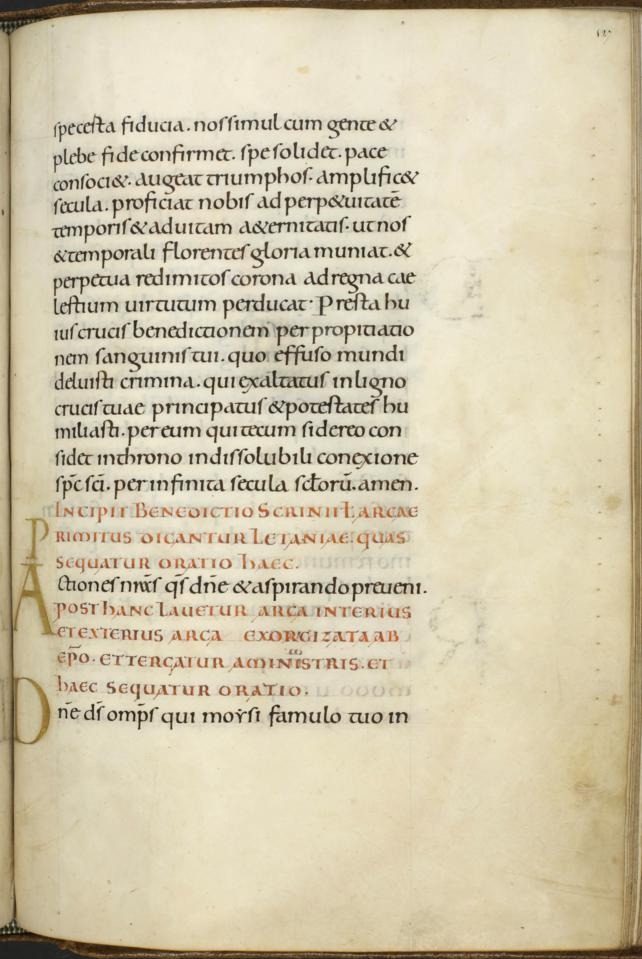 127
specesta fiducia. nossimul cum gente &
plebe fide confirmet. spe solidet. pace
consoci&. augeat triumphos. amplific&
secula. proficiat nobis ad perp&uitatē
temporis & ad uitam a&ernitatis. ut nos
& temporali florentes gloria muniat. &
perpetua redimitos corona ad regna cae
lestium uirtutum perducat. Presta hu
ius crucis benedictionem per propitiatio
nem sanguinis tui. quo effuso mundi
deluisti crimina. qui exaltatus in ligno
crucis tuae principatus & potestates hu
miliasti. per eum qui tecum sidereo con
sidet in throno indissolubili conexione
sp̄c sc̄i. per infinita secula sc̄lorū. amen.
INCIPIT BENEDICTIO SCRINII Ł ARCAE
PRIMITUS DICANTUR LETANIAE. QUAS
SEQUATUR ORATIO HAEC.
Actiones nr̄as qs̄ dn̄e & aspirando preueni.
POST HANC LAUETUR ARCA INTERIUS
ET EXTERIUS ARCA EXORCIZATA AB
EPO. ET TERGATUR A MINISTRIS. ET
HAEC SEQUATUR ORATIO.
Dn̄e ds̄ omp̄s qui moysi famulo tuo in